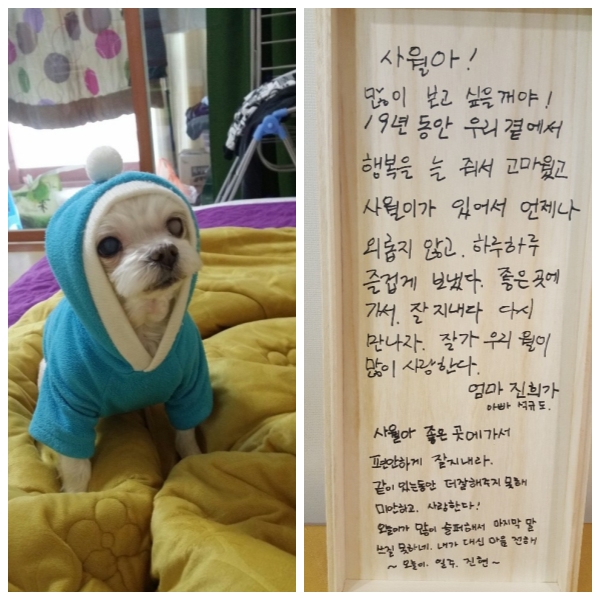 사월아!
많이 보고 싶을꺼야!
19년 동안 우리 곁에서
행복을 늘 줘서 고마웠고
사월이가 있어서 언제나
외롭지 않고. 하루하루
즐겁게 보냈다. 좋은 곳에
가서. 잘 지내다 다시
만나자. 잘가 우리 월이
많이 사랑한다.
엄마 진희가
아빠 석규도.
사월아 좋은 곳에가서
편안하게 잘지내라.
같이 있는동안 더잘해주지 못해
미안하고. 사랑한다!
오늘이가 많이 슬퍼해서 마지막 말
쓰질 못하네. 내가 대신 마음 전해
~ 오늘이. 일주. 진현 ~